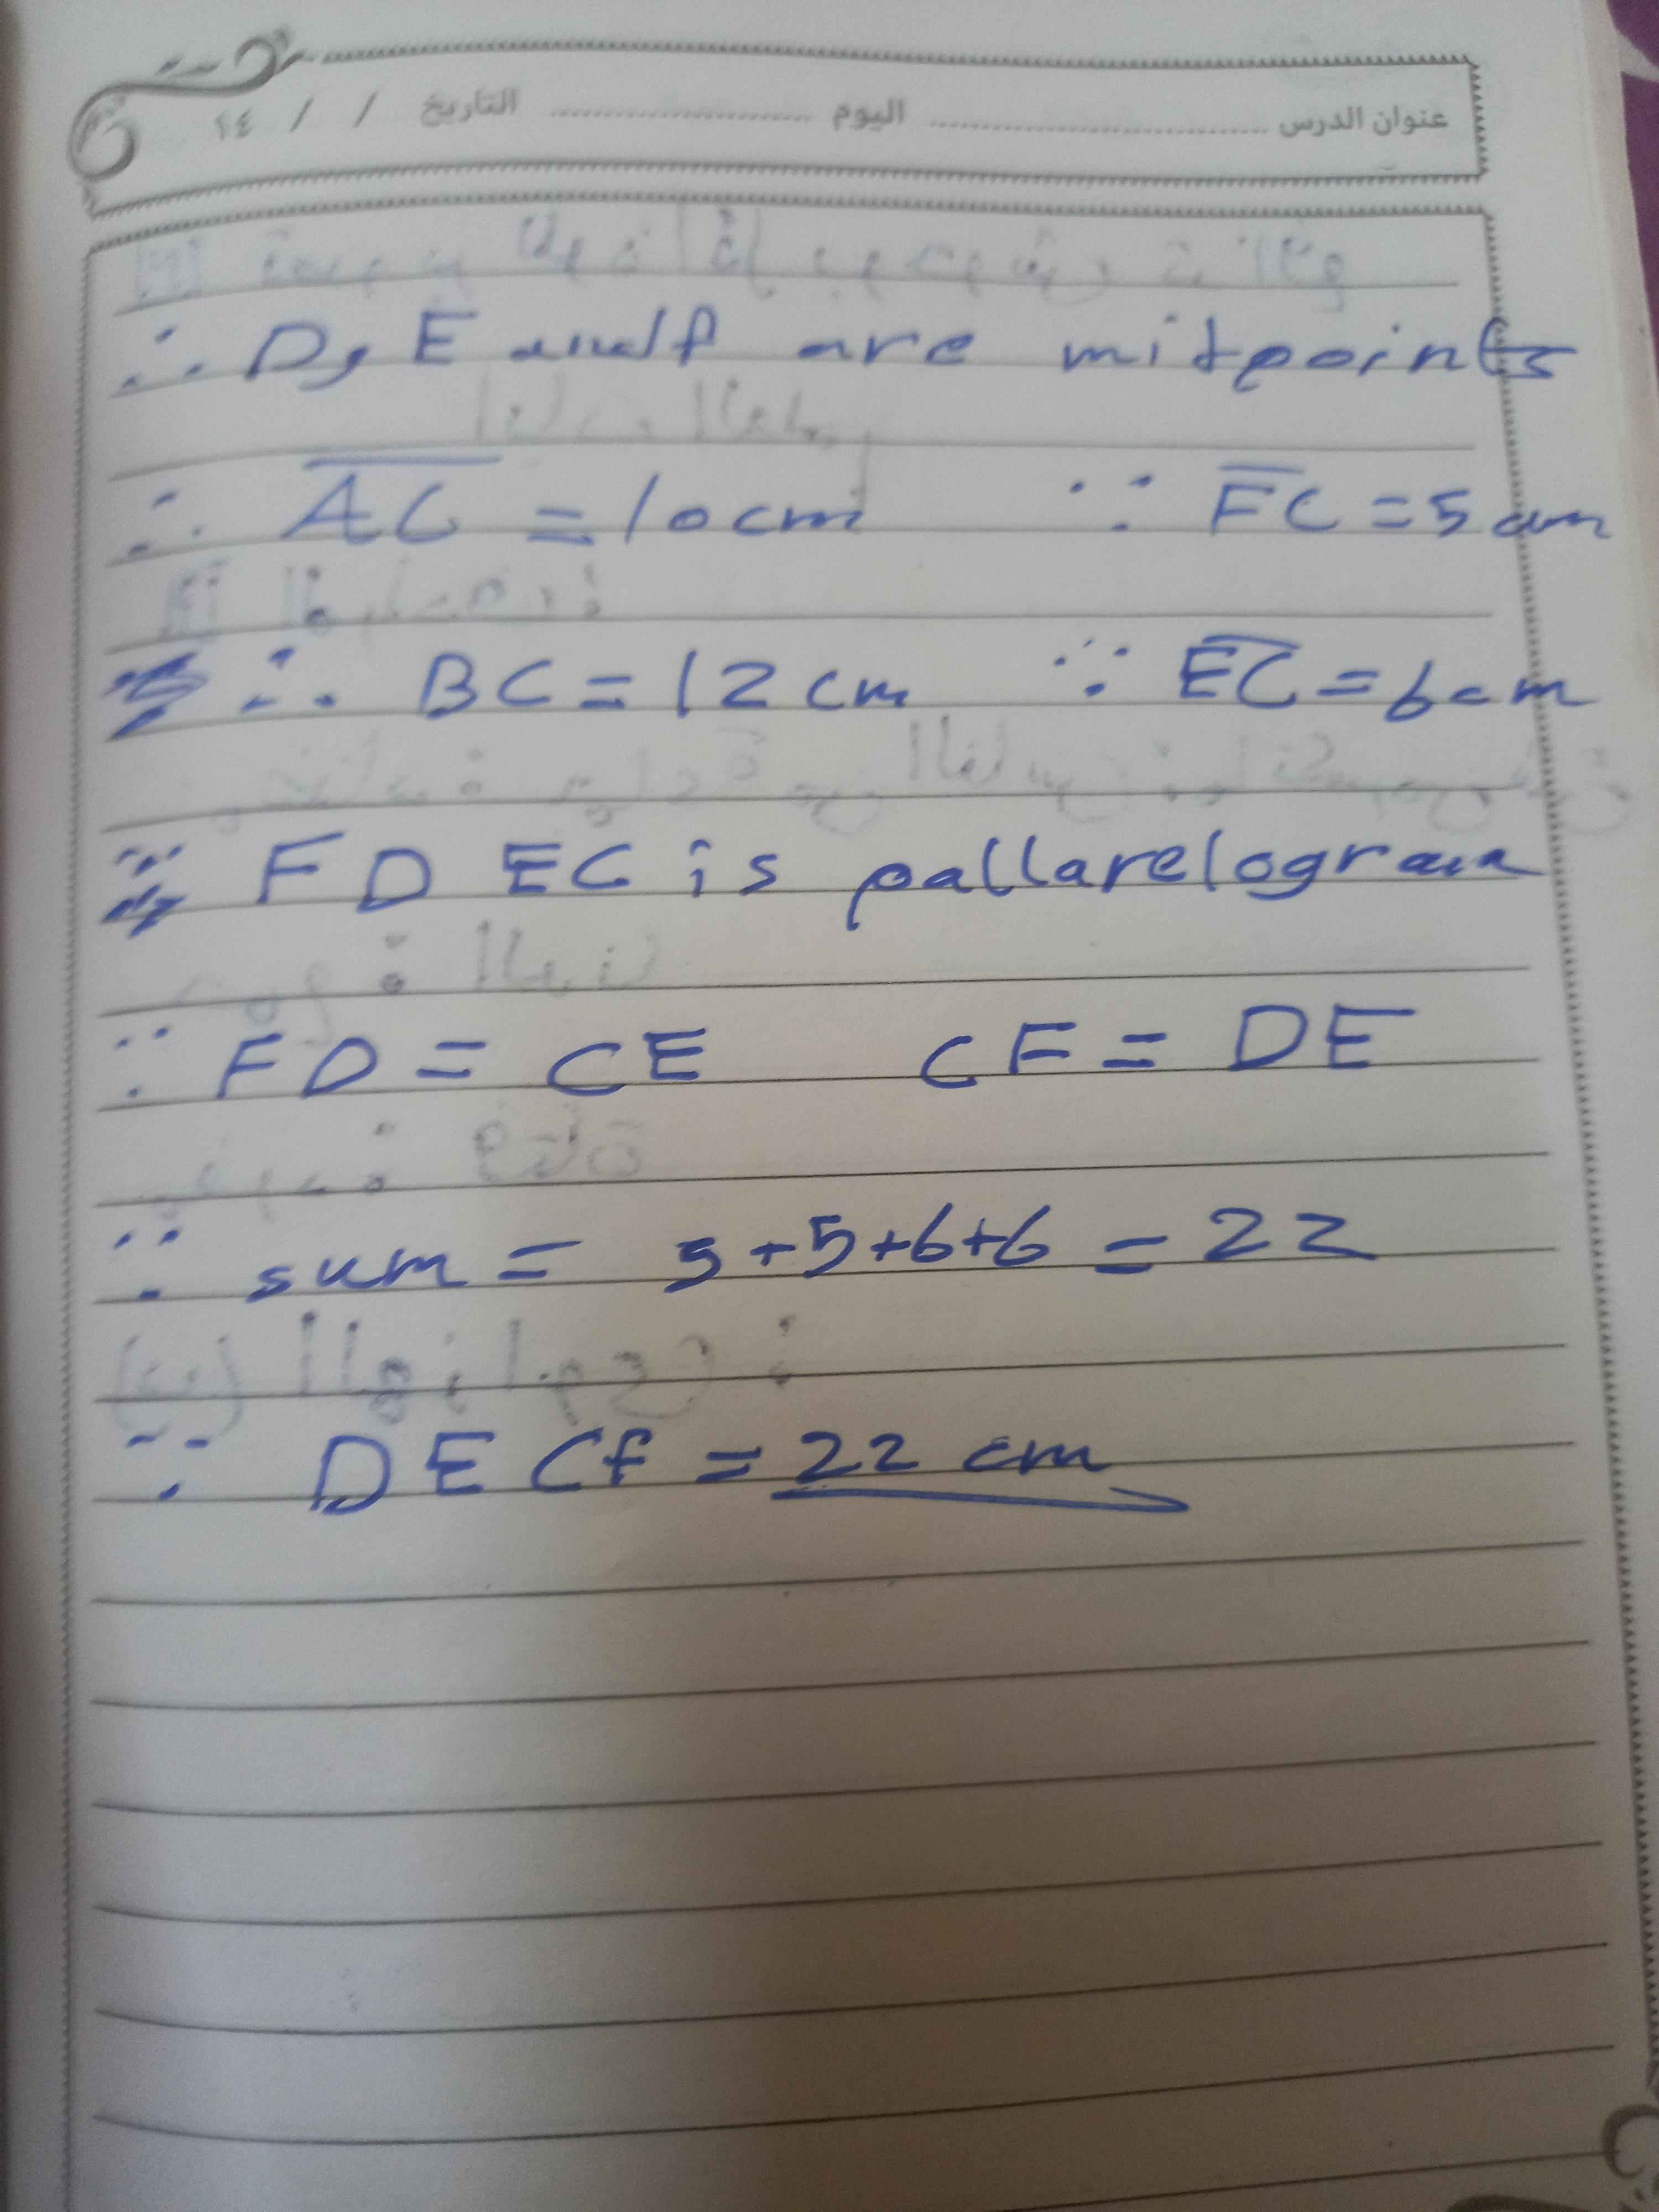 عنوان الدرس ........ اليوم ........ التاريخ / / ١٤
∴ D, E and f are mitpoints
∴ AC = 10 cm ∵ FC = 5 cm
∴ BC = 12 cm ∵ EC = 6 cm
∵ FD EC is pallarelogram
∵ FD = CE CF = DE
∵ sum = 5+5+6+6 = 22
∵ DECf = 22 cm